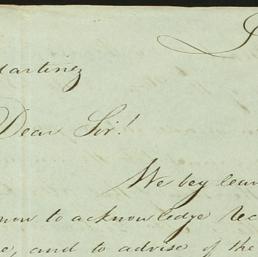 Martinez
Dear Sir!
We beg leav
now to acknowledge rec
e, and to advise of the